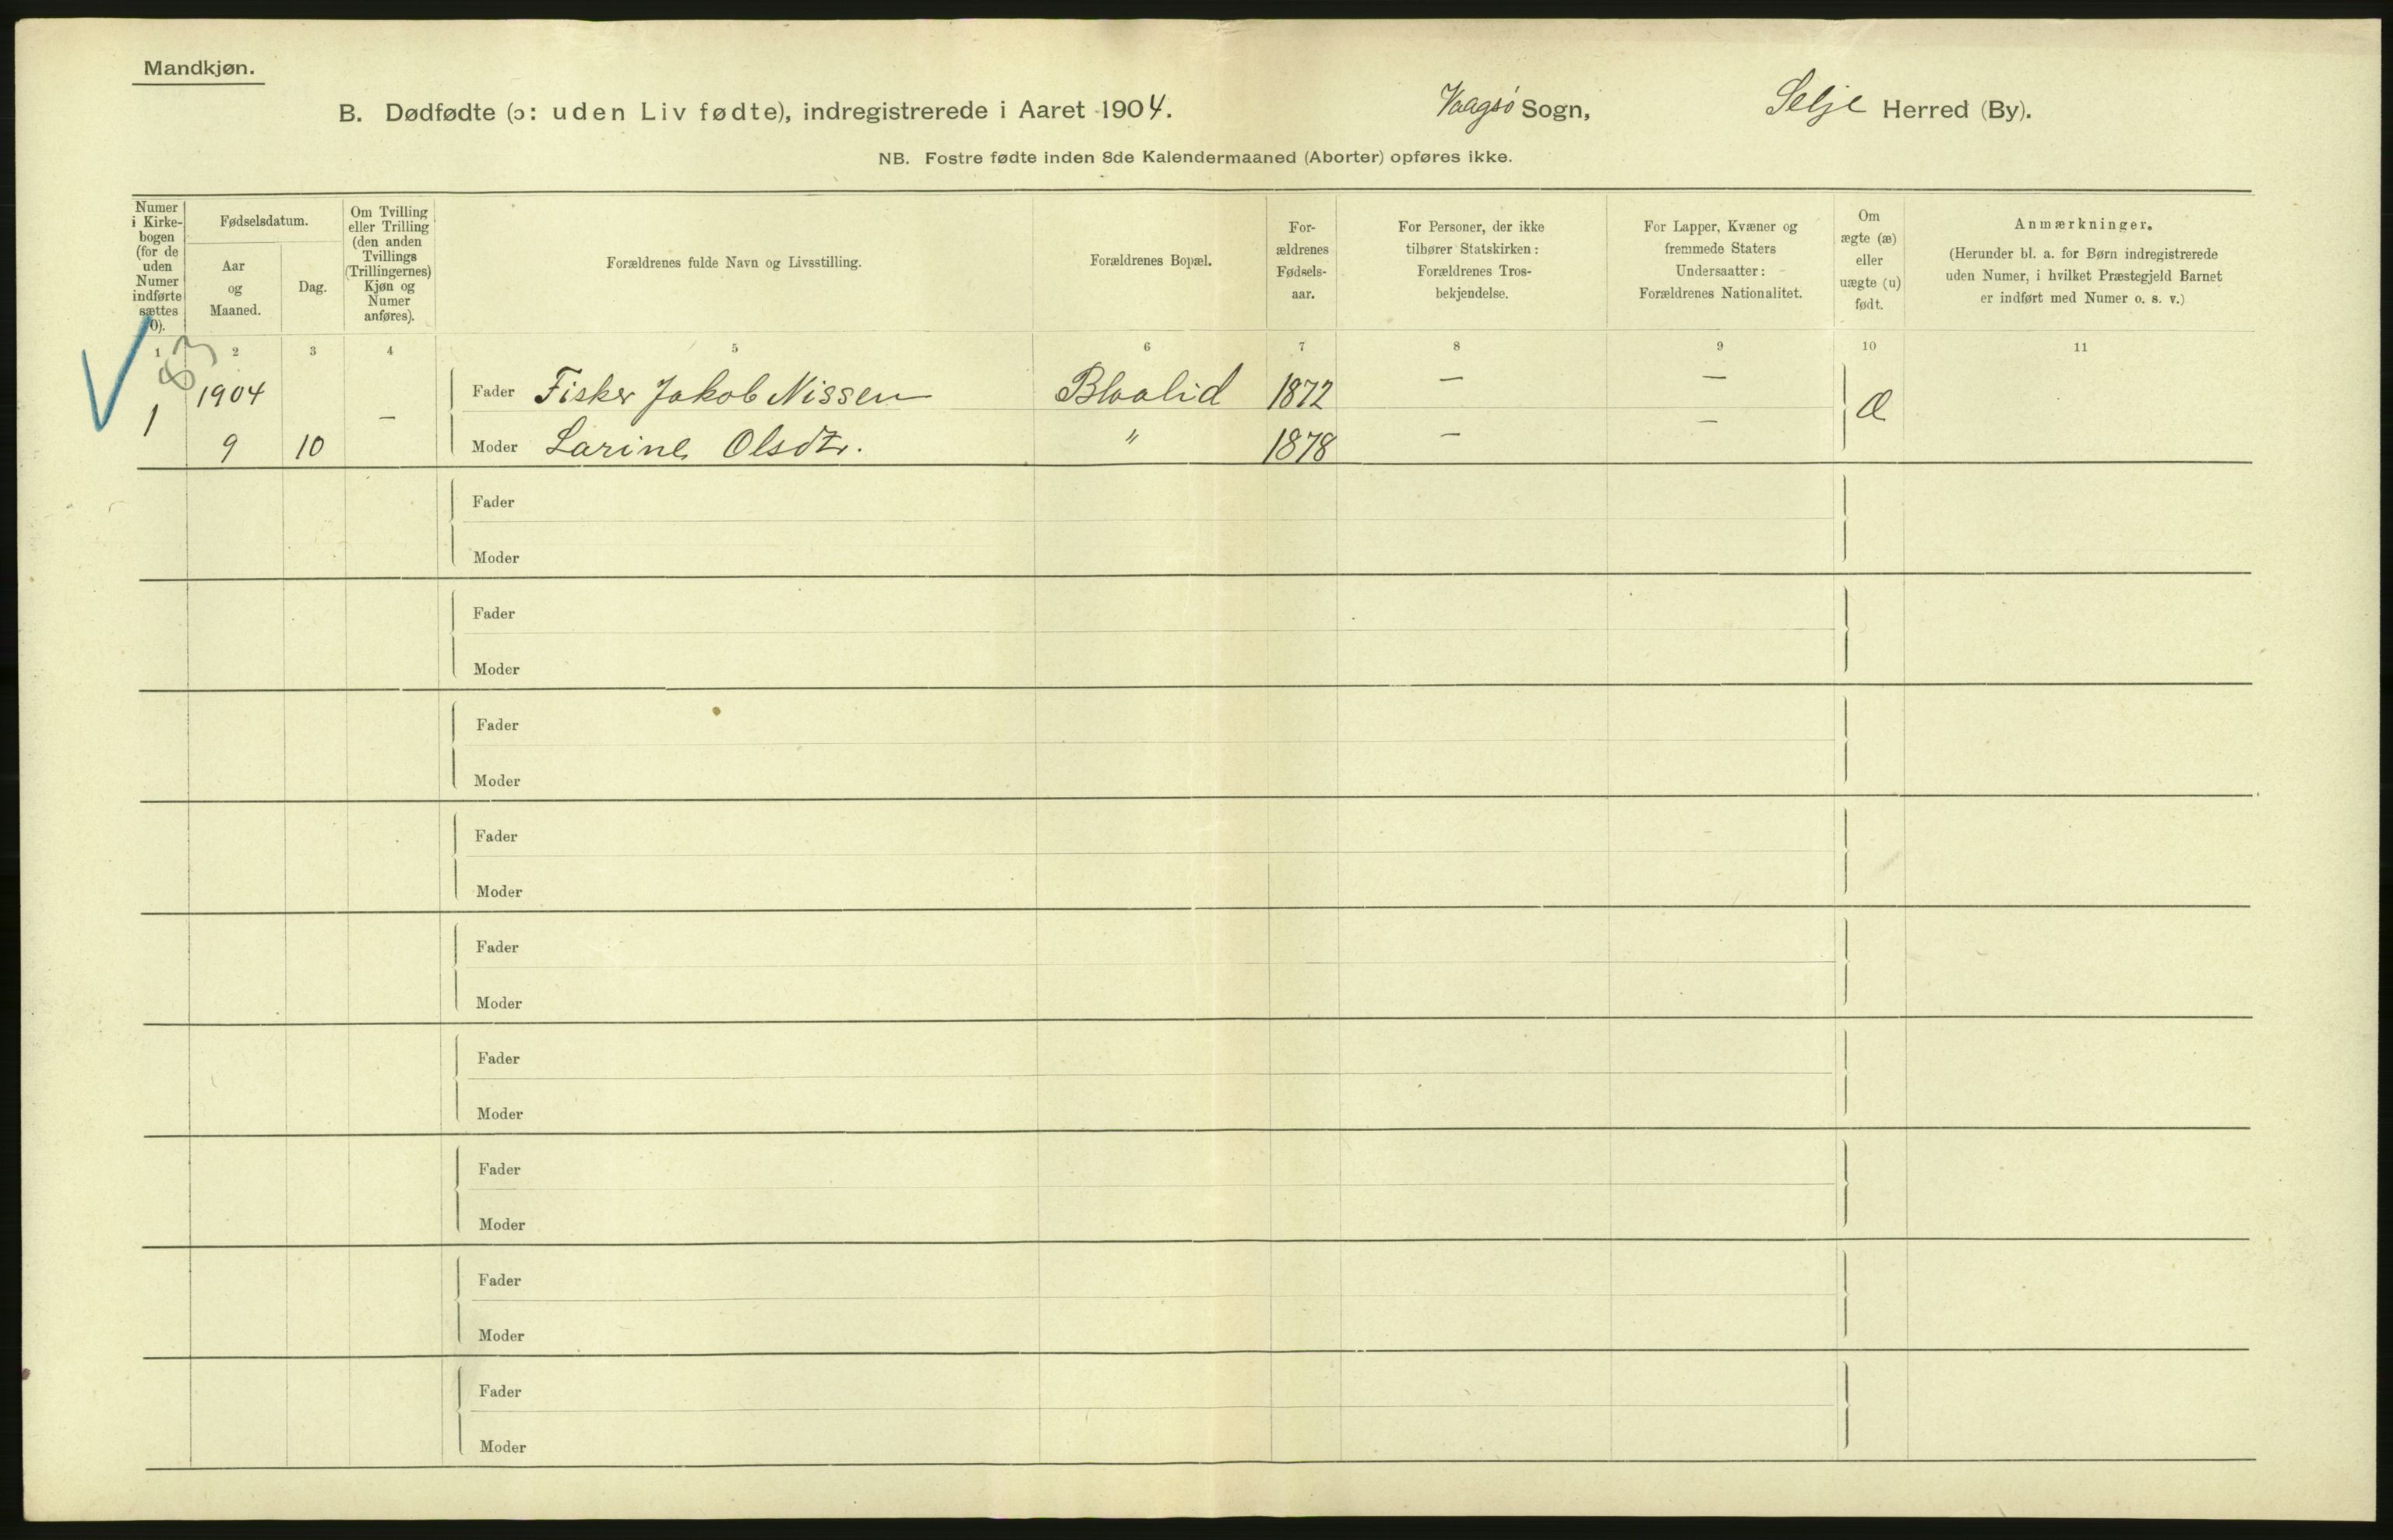 Mandkjøn.
B. Dødfødte (ɔ: uden Liv fødte), indregistrerede i Aaret 1904. Vaagsø Sogn, Selje Herred (By).
NB. Fostre fødte inden 8de Kalendermaaned (Aborter) opføres ikke.
Numer i Kirke-bogen (for de uden Numer indførte sættes 0).
Fødselsdatum.
Aar og Maaned.
Dag.
Om Tvilling eller Trilling (den anden Tvillings (Trillingernes) Kjøn og Numer anføres).
Forældrenes fulde Navn og Livsstilling.
Forældrenes Bopæl.
For-ældrenes Fødsels-aar.
For Personer, der ikke tilhører Statskirken: Forældrenes Tros-bekjendelse.
For Lapper, Kvæner og fremmede Staters Undersaatter: Forældrenes Nationalitet.
Om ægte (æ) eller uægte (u) født.
Anmærkninger.
(Herunder bl. a. for Børn indregistrerede uden Numer, i hvilket Præstegjeld Barnet er indført med Numer o. s. v.)
1 2 3 4 5 6 7 8 9 10 11
83
1904 Fader Fisker Jakob Nissen Blaalid 1872 — —
1 — Æ
9 10 Moder Larine Olsdtr. " 1878 — —
Fader
Moder
Fader
Moder
Fader
Moder
Fader
Moder
Fader
Moder
Fader
Moder
Fader
Moder
Fader
Moder
Fader
Moder